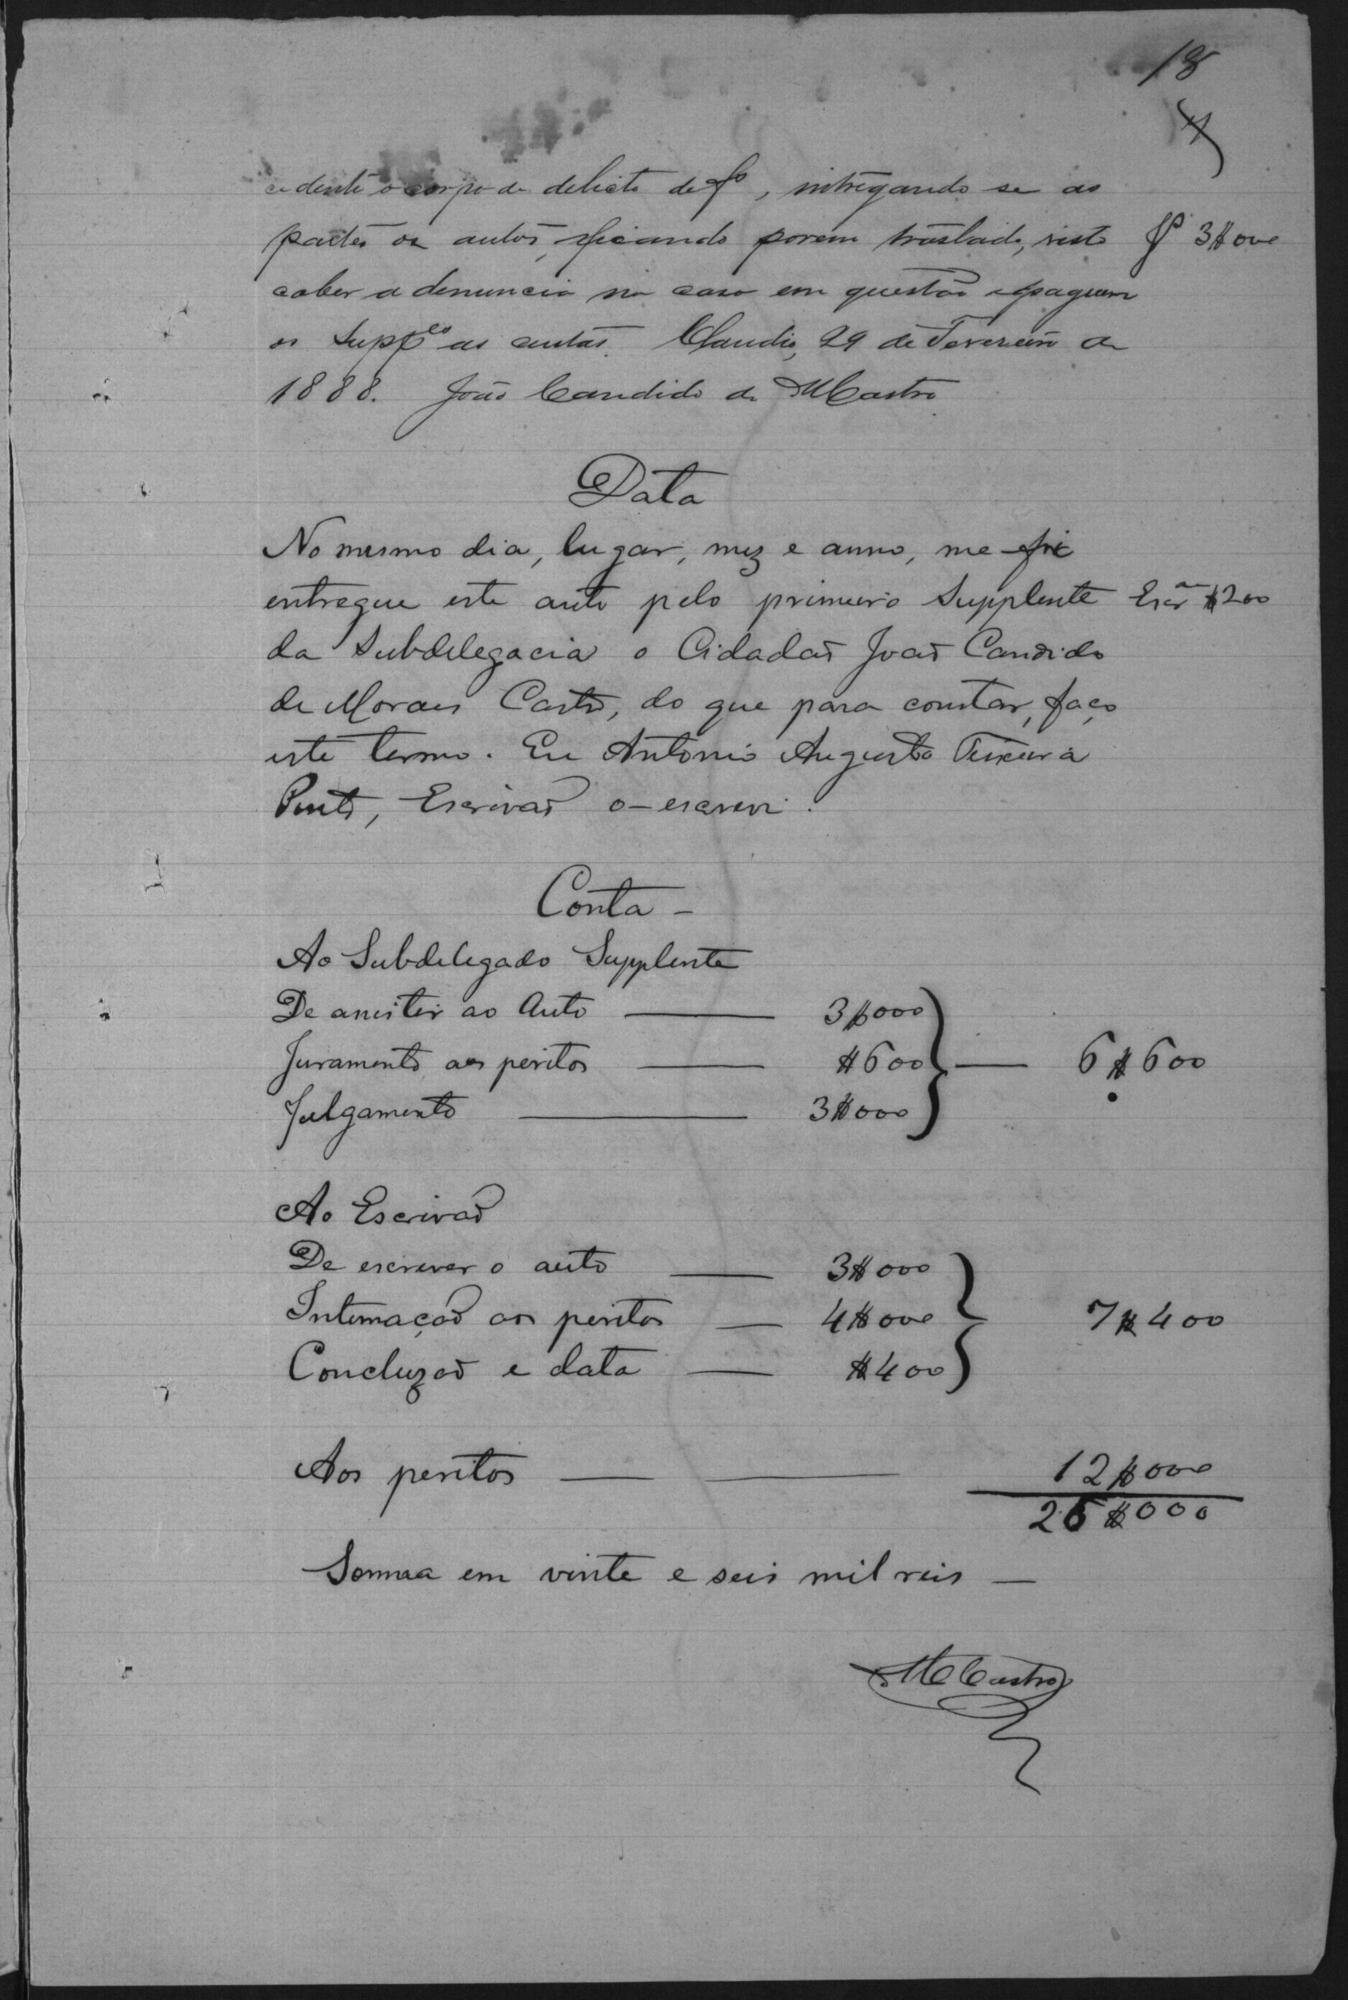 18
cedente o corpo de delicto de fs, intregando se as
partes os autos, ficando porem traslado, visto
Js 3$000
caber a denuncia no caso em questão e paguem
os Suppes as custas. Claudio, 29 de Fevereiro de
1888. João Candido de MCastro
Data
No mesmo dia, lugar, mez e anno, me foi
entregue este auto pelo primeiro Supplente
Escm $200
da Subdelegacia o Cidadão João Candido
de Moraes Castro, do que para constar, faço
este termo. Eu Antonio Augusto Teixeira
Pinto, Escrivão o-escrevi.
Conta -
Ao Subdelegado Supplente
De assistir ao Auto — 3$000
Juramento aos peritos — $600 — 6$600
Julgamento — 3$000
Ao Escrivão
De escrever o auto — 3$000
Intimação aos peritos — 4$000 7$400
Concluzão e data — $400
Aos peritos — — 12$000
26$000
Somma em vinte e seis mil reis —
MCastro